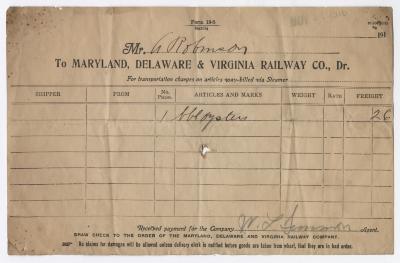 Form 19-5
NOV 1916
191
Mr. A Robinson
To MARYLAND, DELAWARE & VIRGINIA RAILWAY CO., Dr.
For transportation charges on articles way-billed via Steamer
SHIPPER FROM No. Pkgs. ARTICLES AND MARKS WEIGHT RATE FREIGHT
1 bbl oysters 26
Received payment for the Company W. L. Simmon Agent.
DRAW CHECK TO THE ORDER OF THE MARYLAND, DELAWARE AND VIRGINIA RAILWAY COMPANY.
No claims for damages will be allowed unless delivery clerk is notified before goods are taken from wharf, that they are in bad order.